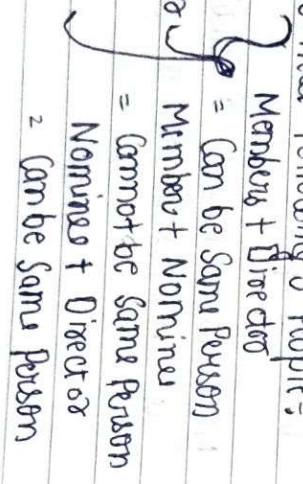 People =
Members + Director
= Can be Same Person
Member + Nominee
= Cannot be Same Person
Nominee + Director
= Can be Same Person